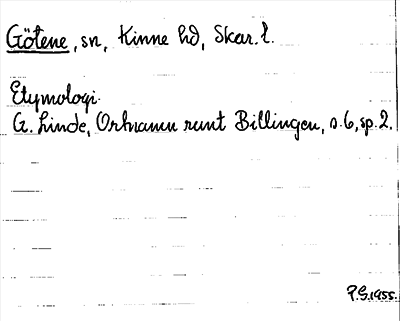 Götene, sn, Kinne hd, Skar. l.
Etymologi.
G. Linde, Ortnamn runt Billingen, s. 6, sp. 2.
P.S. 1955.